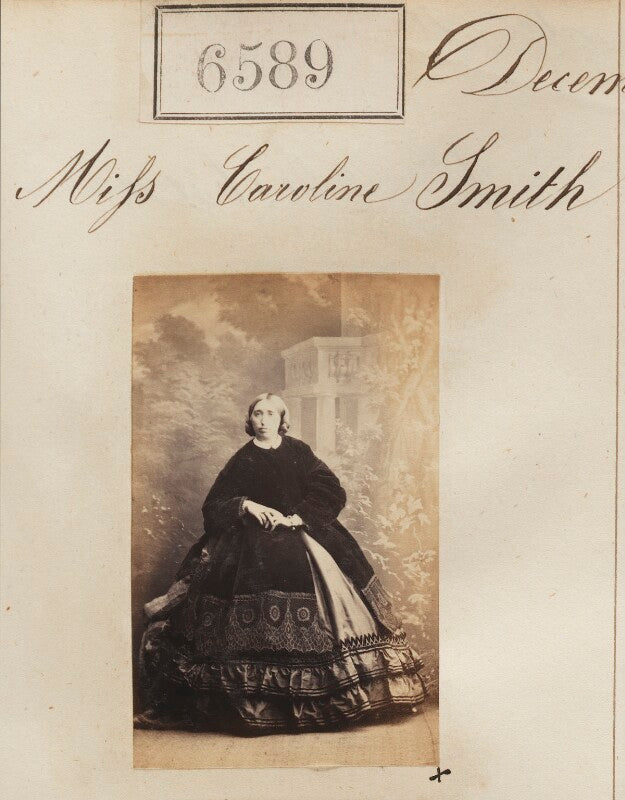 6589
Decem
Miss Caroline Smith